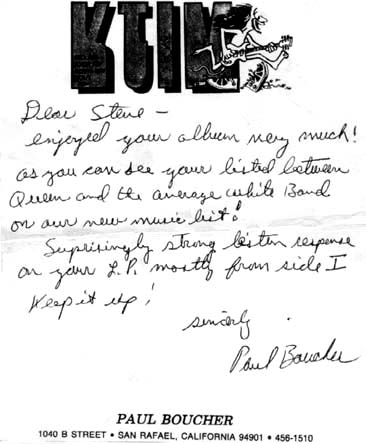 KTIM
Dear Steve —
enjoyed your album very much!
as you can see your listed between
Queen and the average white Band
on our new music list!
Suprisingly strong listen response
on your L.P. mostly from side I
Keep it up!
sincerly
Paul Boucher
PAUL BOUCHER
1040 B STREET • SAN RAFAEL, CALIFORNIA 94901 • 456-1510